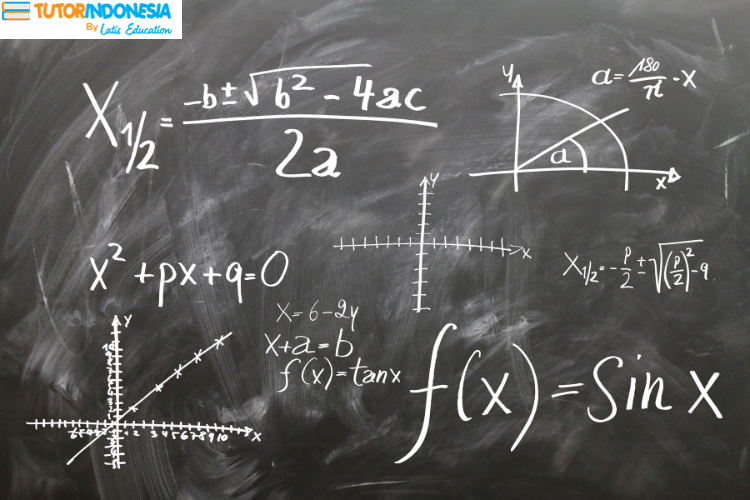 TUTORINDONESIA
By Latis Education
X1/2 = -b±√b² - 4ac / 2a
y
a = 180/π · x
a
x
y
x
x² + px + q = 0
X1/2 = - p/2 ± √(p/2)² - q
x = 6 - 2y
x + a = b
f(x) = tan x
f(x) = Sin x
y
x